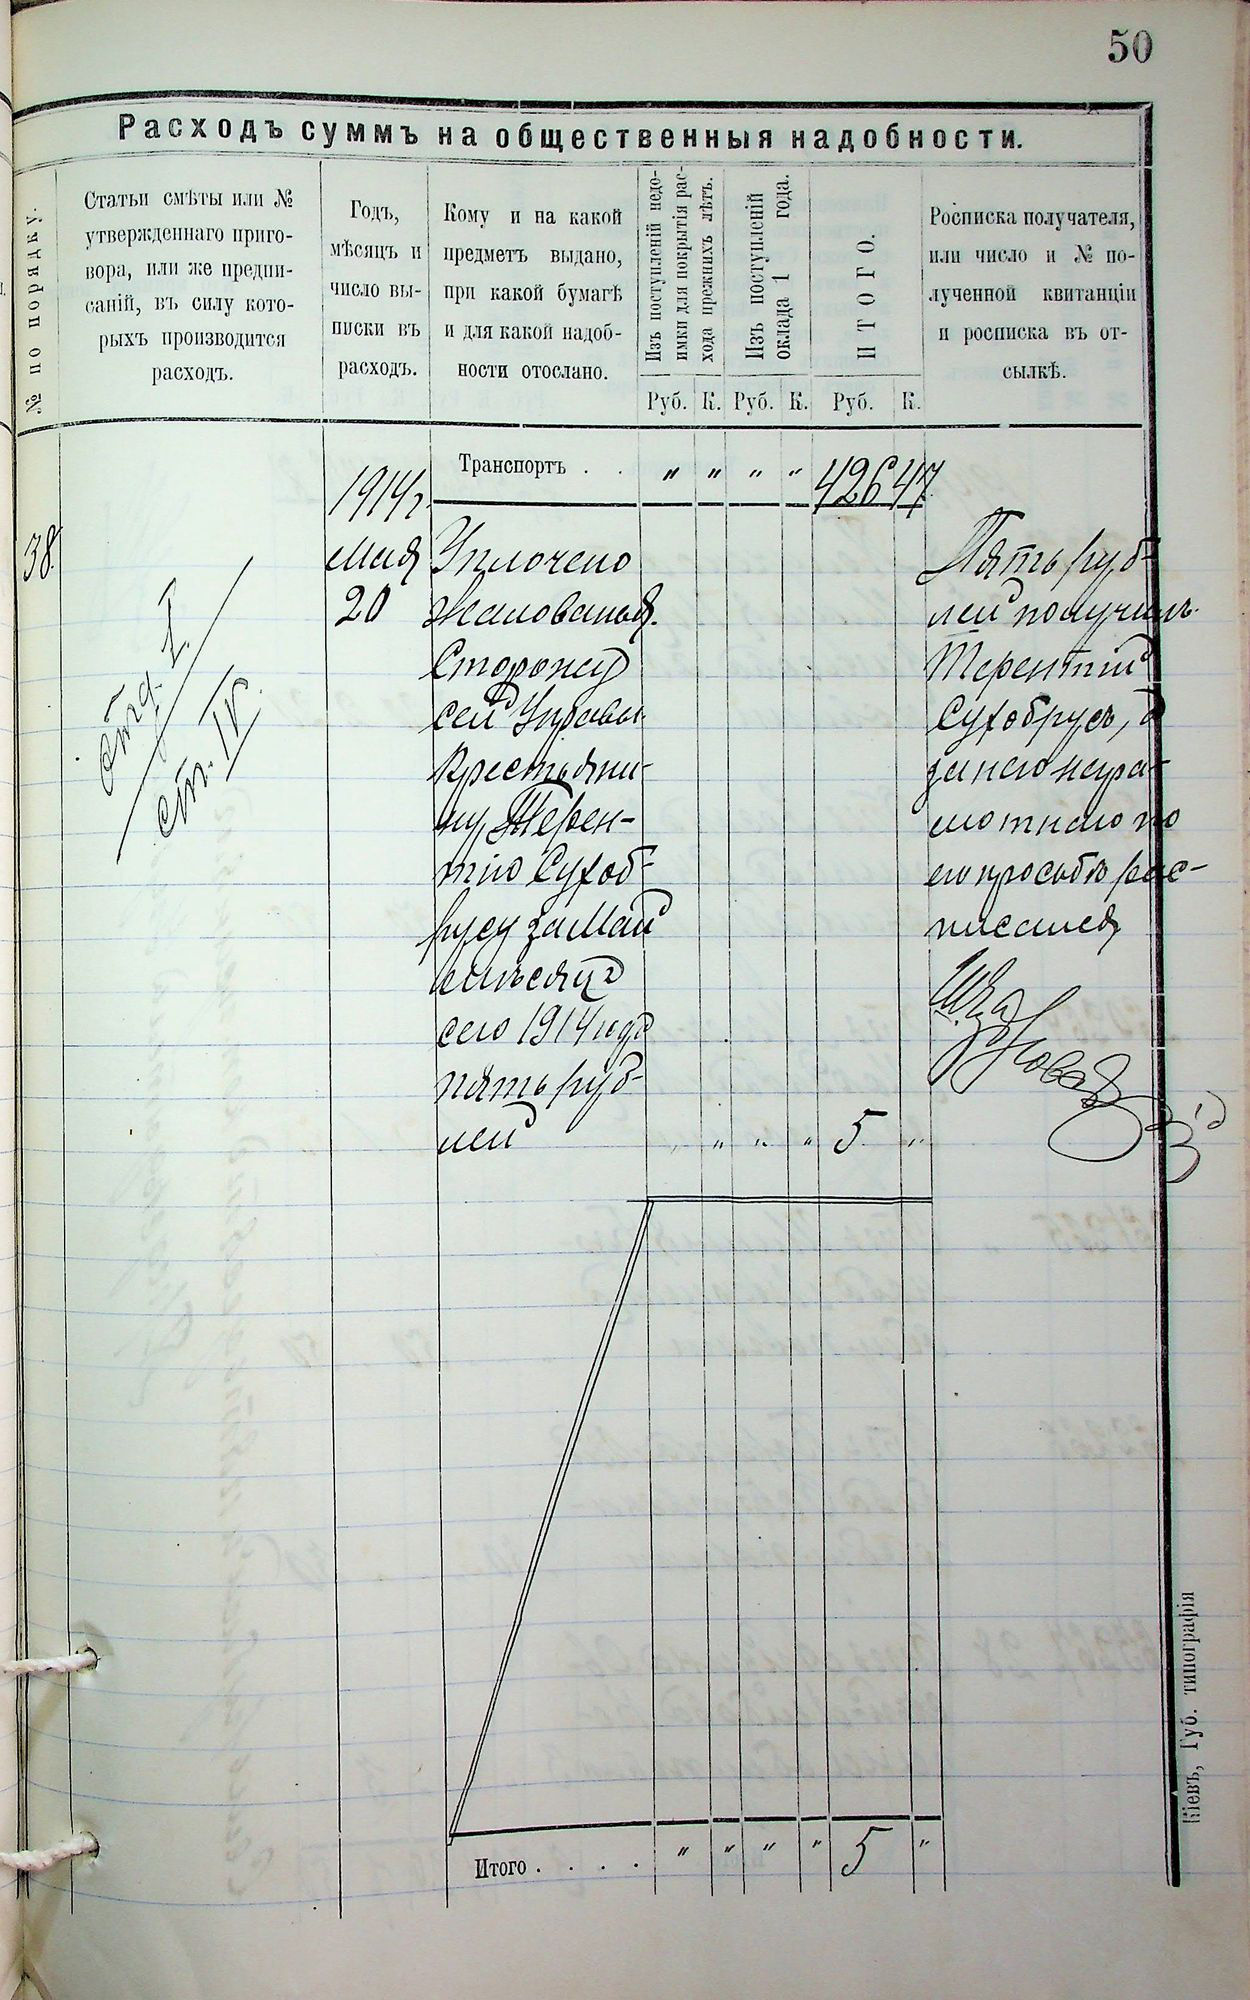 50
Расходъ суммъ на общественныя надобности.
№ по порядку.
Статьи смѣты или №
утвержденнаго приго-
вора, или же предпи-
саній, въ силу кото-
рыхъ производится
расходъ.
Годъ,
мѣсяцъ и
число вы-
писки въ
расходъ.
Кому и на какой
предметъ выдано,
при какой бумагѣ
и для какой надоб-
ности отослано.
Изъ поступленій недо-
имки для покрытія рас-
хода прежнихъ лѣтъ.
Изъ поступленій
оклада 1 года.
ИТОГО.
Росписка получателя,
или число и № по-
лученной квитанціи
и росписка въ от-
сылкѣ.
Руб. К. Руб. К. Руб. К.
Транспортъ . . " " " " 426 47
38.
отд. I
ст. IV.
1914 г.
мая
20
Уплочено
жалованья
Сторожу
сей Управы
Крестьяни-
ну Терен-
тію Сухоб-
русу за Май
мѣсяцъ
сего 1914 года
пять руб-
лей " " " " 5 "
Пять руб-
лей получилъ
Терентий
Сухобрус, а
за него негра-
мотного по
его просьбѣ рас-
писался
Итого . . . . " " " " 5 "
Кіевъ, Губ. типографія